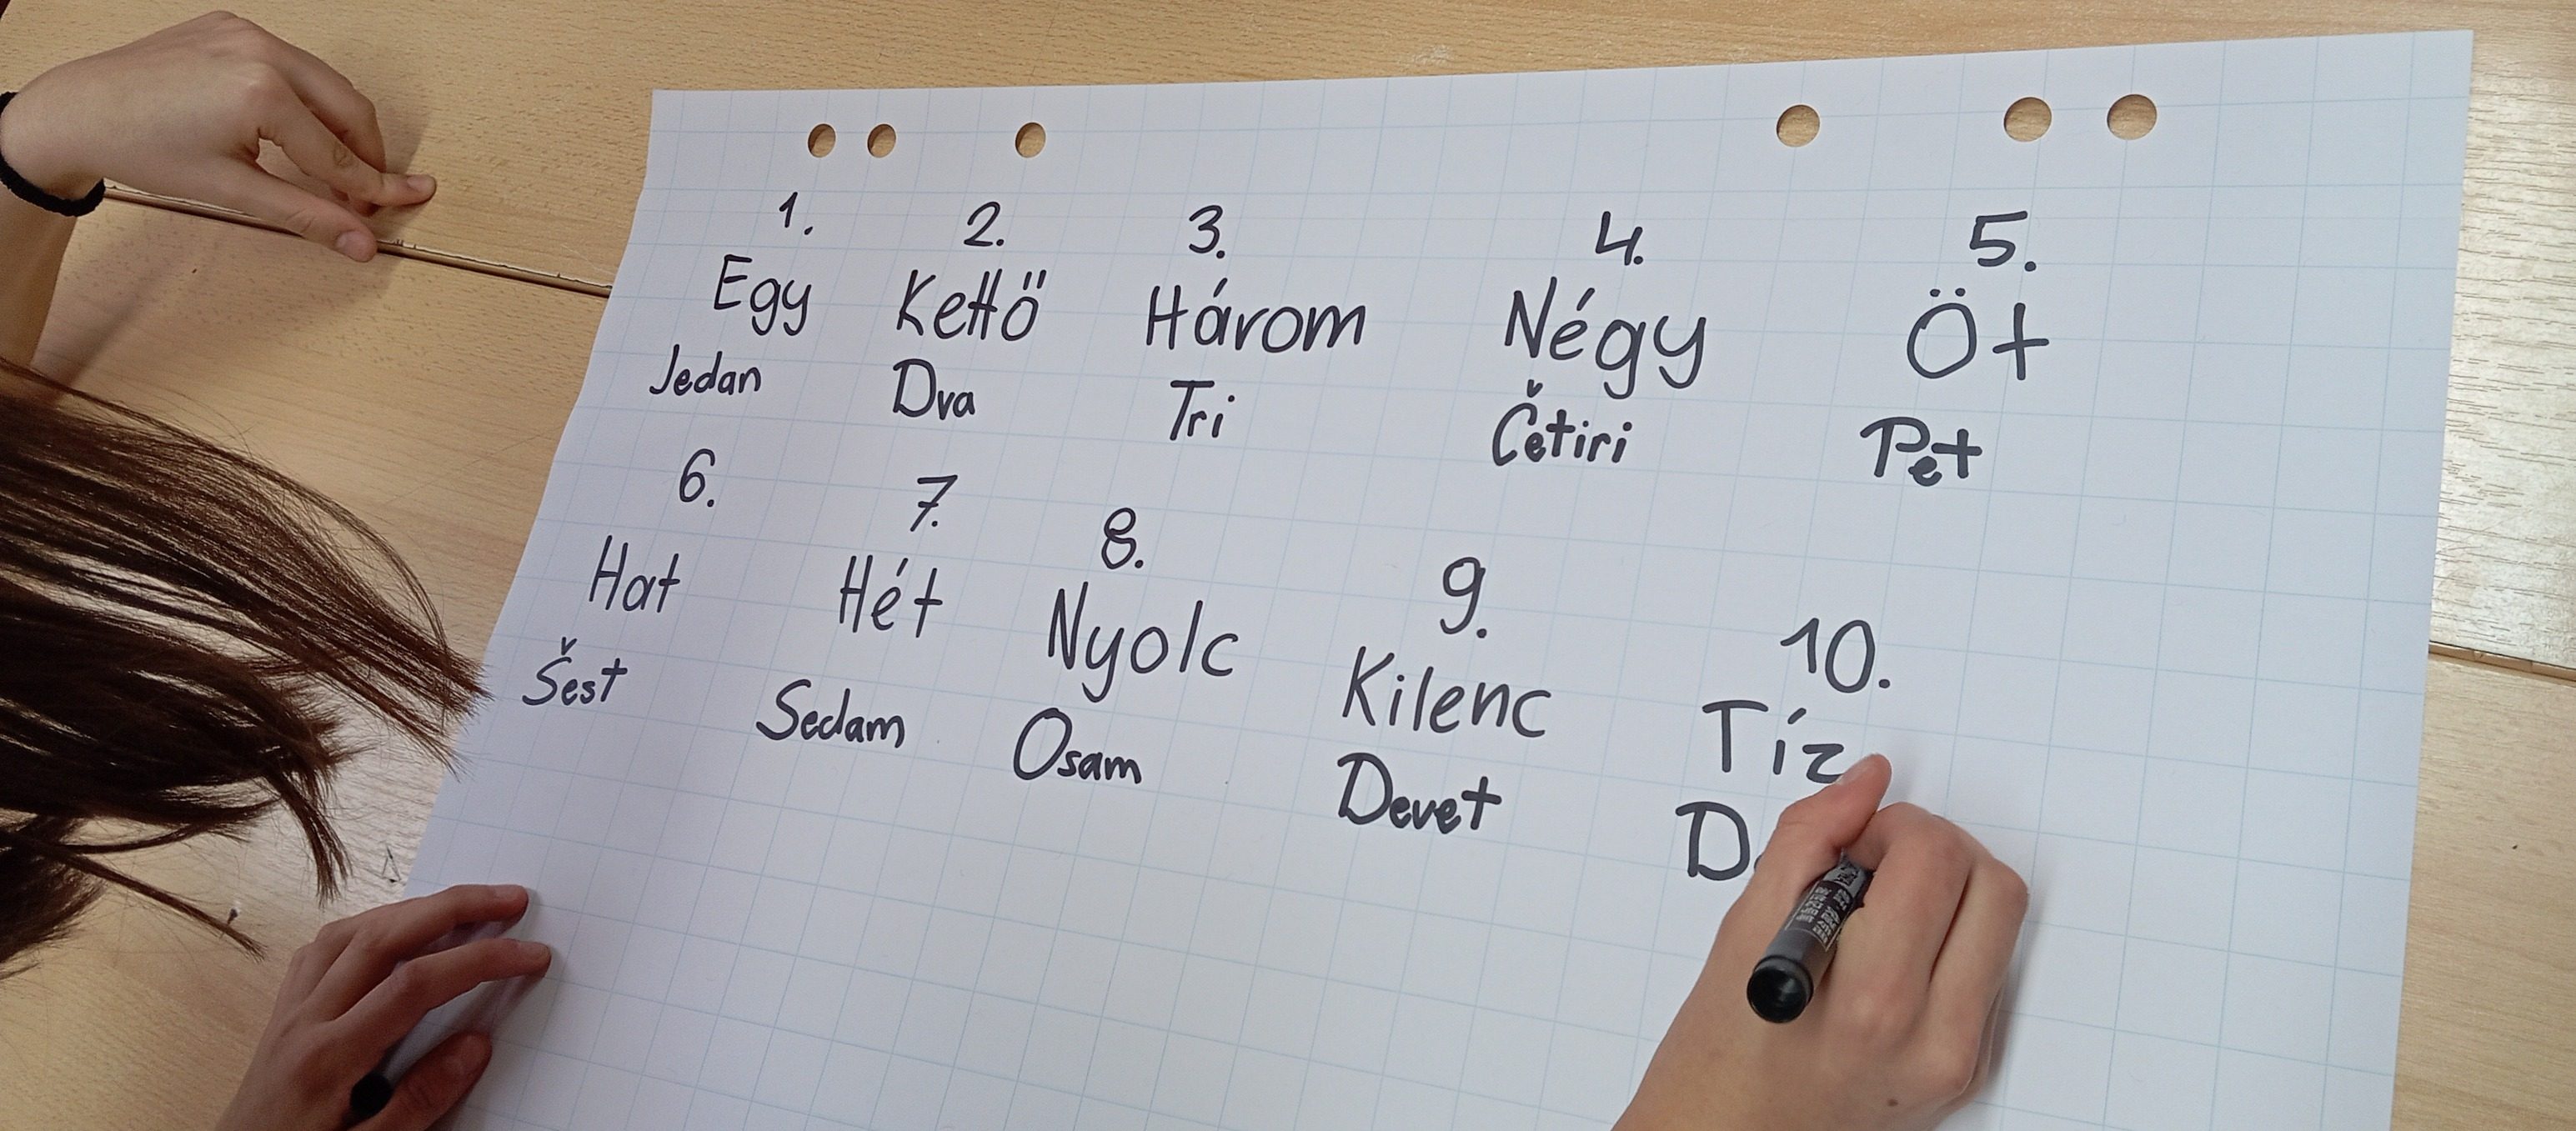 1. 2. 3. 4. 5.
Egy Kettő Három Négy Öt
Jedan Dva Tri Četiri Pet
6. 7. 8. 9. 10.
Hat Hét Nyolc Kilenc Tíz
Šest Sedam Osam Devet